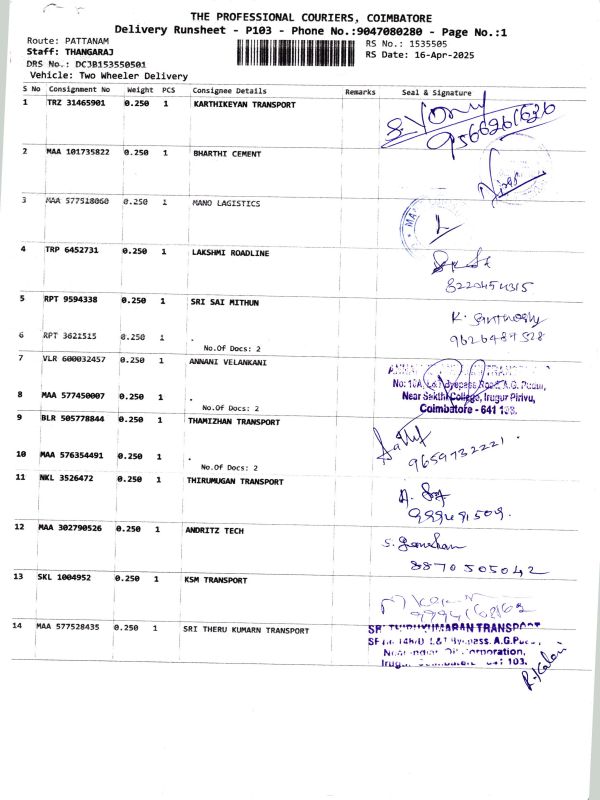 THE PROFESSIONAL COURIERS, COIMBATORE
Delivery Runsheet - P103 - Phone No.:9047080280 - Page No.:1
Route: PATTANAM RS No.: 1535505
Staff: THANGARAJ RS Date: 16-Apr-2025
DRS No.: DCJB153550501
Vehicle: Two Wheeler Delivery
S No Consignment No Weight PCS Consignee Details Remarks Seal & Signature
1 TRZ 31465901 0.250 1 KARTHIKEYAN TRANSPORT
9566261636
2 MAA 101735822 0.250 1 BHARTHI CEMENT
3 MAA 577518060 0.250 1 MANO LAGISTICS
4 TRP 6452731 0.250 1 LAKSHMI ROADLINE
8220454315
5 RPT 9594338 0.250 1 SRI SAI MITHUN
K. Santhosh
6 RPT 3621515 0.250 1 . 9626489528
No.Of Docs: 2
7 VLR 600032457 0.250 1 ANNANI VELANKANI
No: 10A, L&T Byepass Road, A.G. Pudur,
8 MAA 577450007 0.250 1 . Near Sakthi College, Irugur Pirivu,
No.Of Docs: 2 Coimbatore - 641 103.
9 BLR 505778844 0.250 1 THAMIZHAN TRANSPORT
10 MAA 576354491 0.250 1 . 9659732221.
No.Of Docs: 2
11 NKL 3526472 0.250 1 THIRUMUGAN TRANSPORT
12 MAA 302790526 0.250 1 ANDRITZ TECH
8870505042
13 SKL 1004952 0.250 1 KSM TRANSPORT
14 MAA 577528435 0.250 1 SRI THERU KUMARN TRANSPORT
TRANSPORT
L&T Byepass, A.G.Pudur
Corporation,
103.
R. Kalai